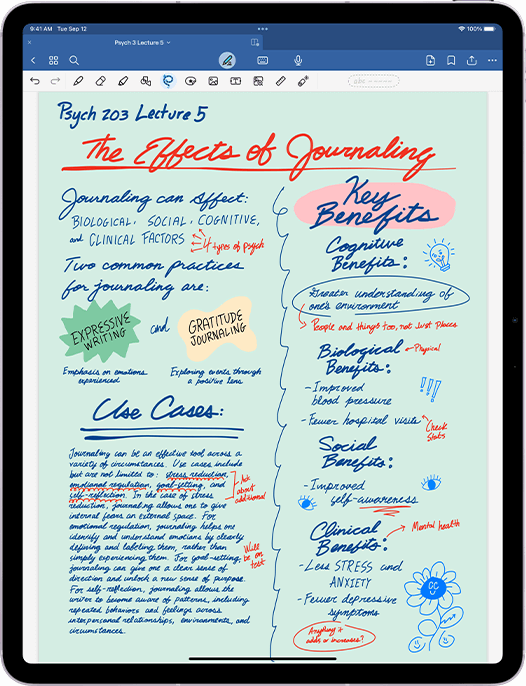 9:41 AM Tue Sep 12
100%
Psych 3 Lecture 5
Psych 203 Lecture 5
The Effects of Journaling
Journaling can Affect:
BIOLOGICAL, SOCIAL, COGNITIVE,
and CLINICAL FACTORS
4 types of psych
Two common practices
for journaling are:
EXPRESSIVE
WRITING
and
GRATITUDE
JOURNALING
Emphasis on emotions
experienced
Exploring events through
a positive lens
Use Cases:
Journaling can be an effective tool across a
variety of circumstances. Use cases include
but are not limited to: stress reduction,
emotional regulation, goal-setting, and
self-reflection. In the case of stress
reduction, journaling allows one to give
internal fears an external space. For
emotional regulation, journaling helps one
identify and understand emotions by clearly
defining and labeling them, rather than
simply experiencing them. For goal-setting,
journaling can give one a clear sense of
direction and unlock a new sense of purpose.
For self-reflection, journaling allows the
writer to become aware of patterns, including
repeated behaviors and feelings across
interpersonal relationships, environments, and
circumstances.
Ask
about
additional
Will
be on
test
Key
Benefits
Cognitive
Benefits:
Greater understanding of
one's environment
People and things too, not just places
Biological
Benefits:
Physical
- Improved
blood pressure
- Fewer hospital visits
Check
Stats
Social
Benefits:
- Improved
self-awareness
Clinical
Benefits:
Mental health
- Less STRESS and
ANXIETY
- Fewer depressive
symptoms
Anything it
adds or increases?